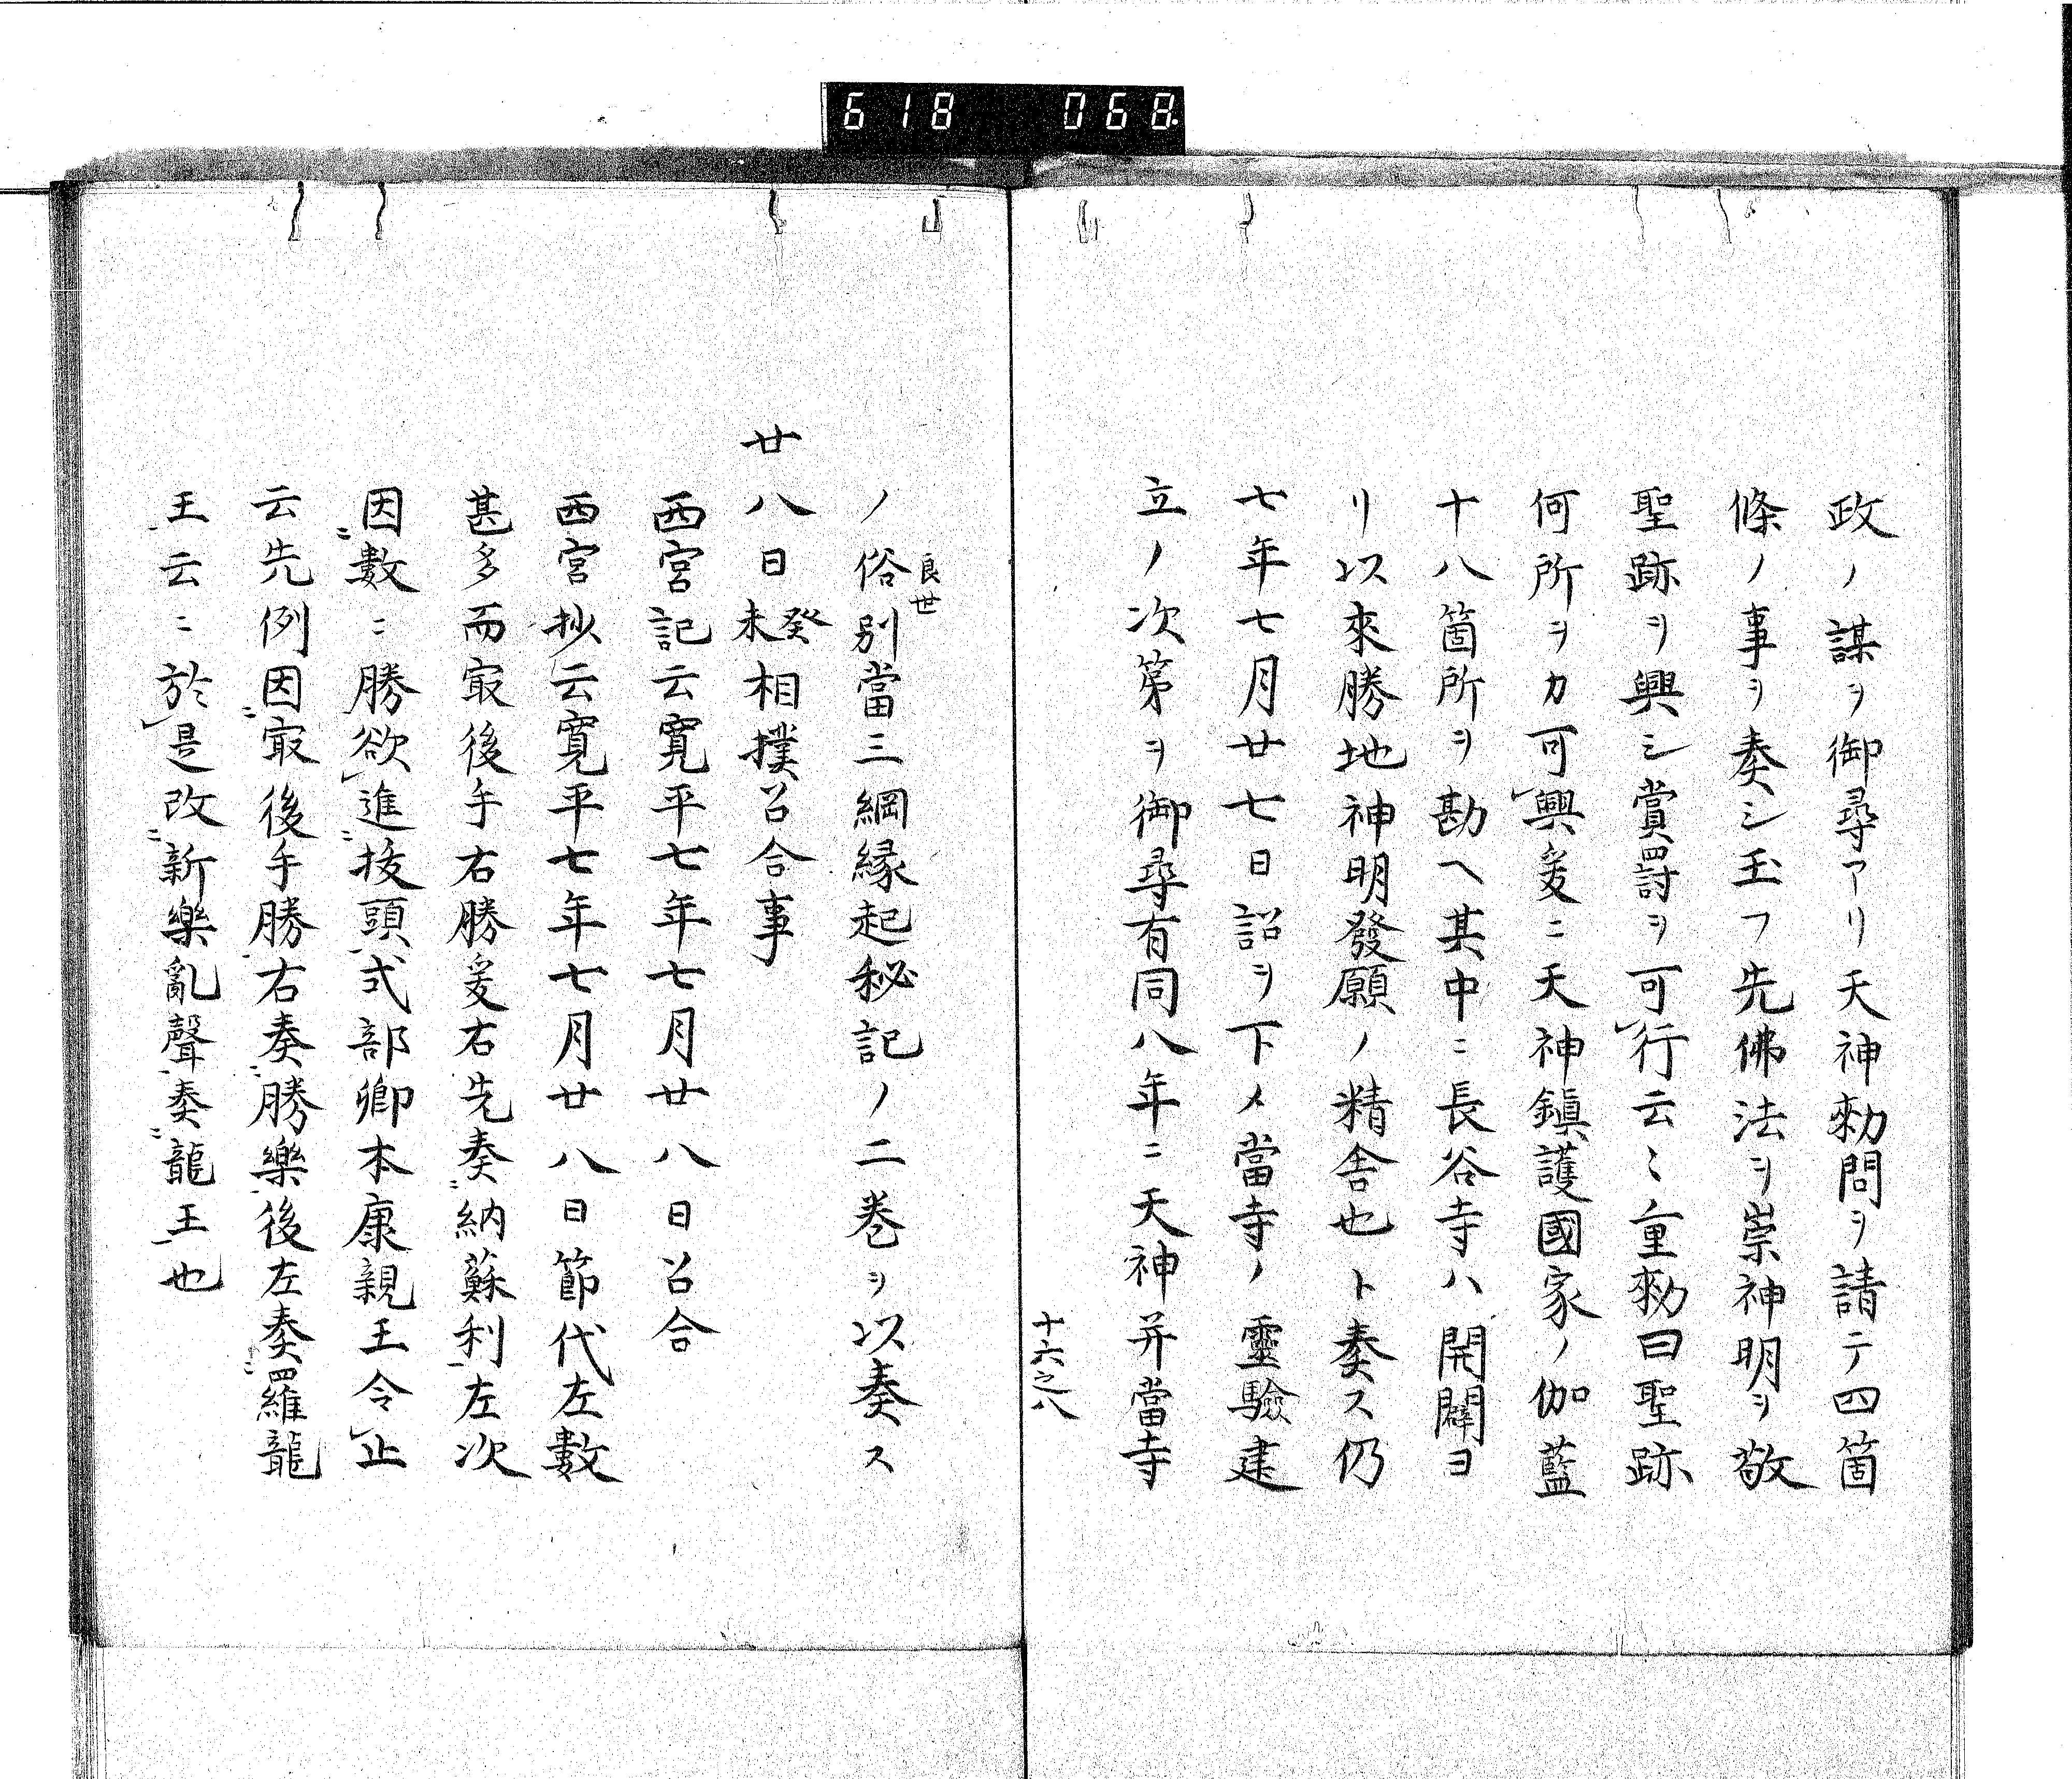 618 068
政ノ謀ヲ御尋アリ天神勅問ヲ請テ四箇
條ノ事ヲ奏シ玉フ先佛法ヲ崇神明ヲ敬
聖跡ヲ興シ賞罸ヲ可行云〻重勅曰聖跡
何所ヲカ可興爰ニ天神鎭護國家ノ伽藍
十八箇所ヲ勘ヘ其中ニ長谷寺ハ開闢ヨ
リ以來勝地神明發願ノ精舎也ト奏ス仍
七年七月廿七日詔ヲ下メ當寺ノ靈驗建
立ノ次第ヲ御尋有同八年ニ天神并當寺
十六之八
ノ俗別當良世三綱縁起秘記ノ二巻ヲ以奏ス
廿八日癸未相撲召合事
西宮記云寛平七年七月廿八日召合
西宮抄云寛平七年七月廿八日節代左數
甚多而㝡後手右勝爰右先奏納蘇利左次
因數ニ勝欲進抜頭式部卿本康親王令止
云先例因㝡後手勝右奏勝樂後左奏羅龍
王云〻於是改新樂亂聲奏龍王也